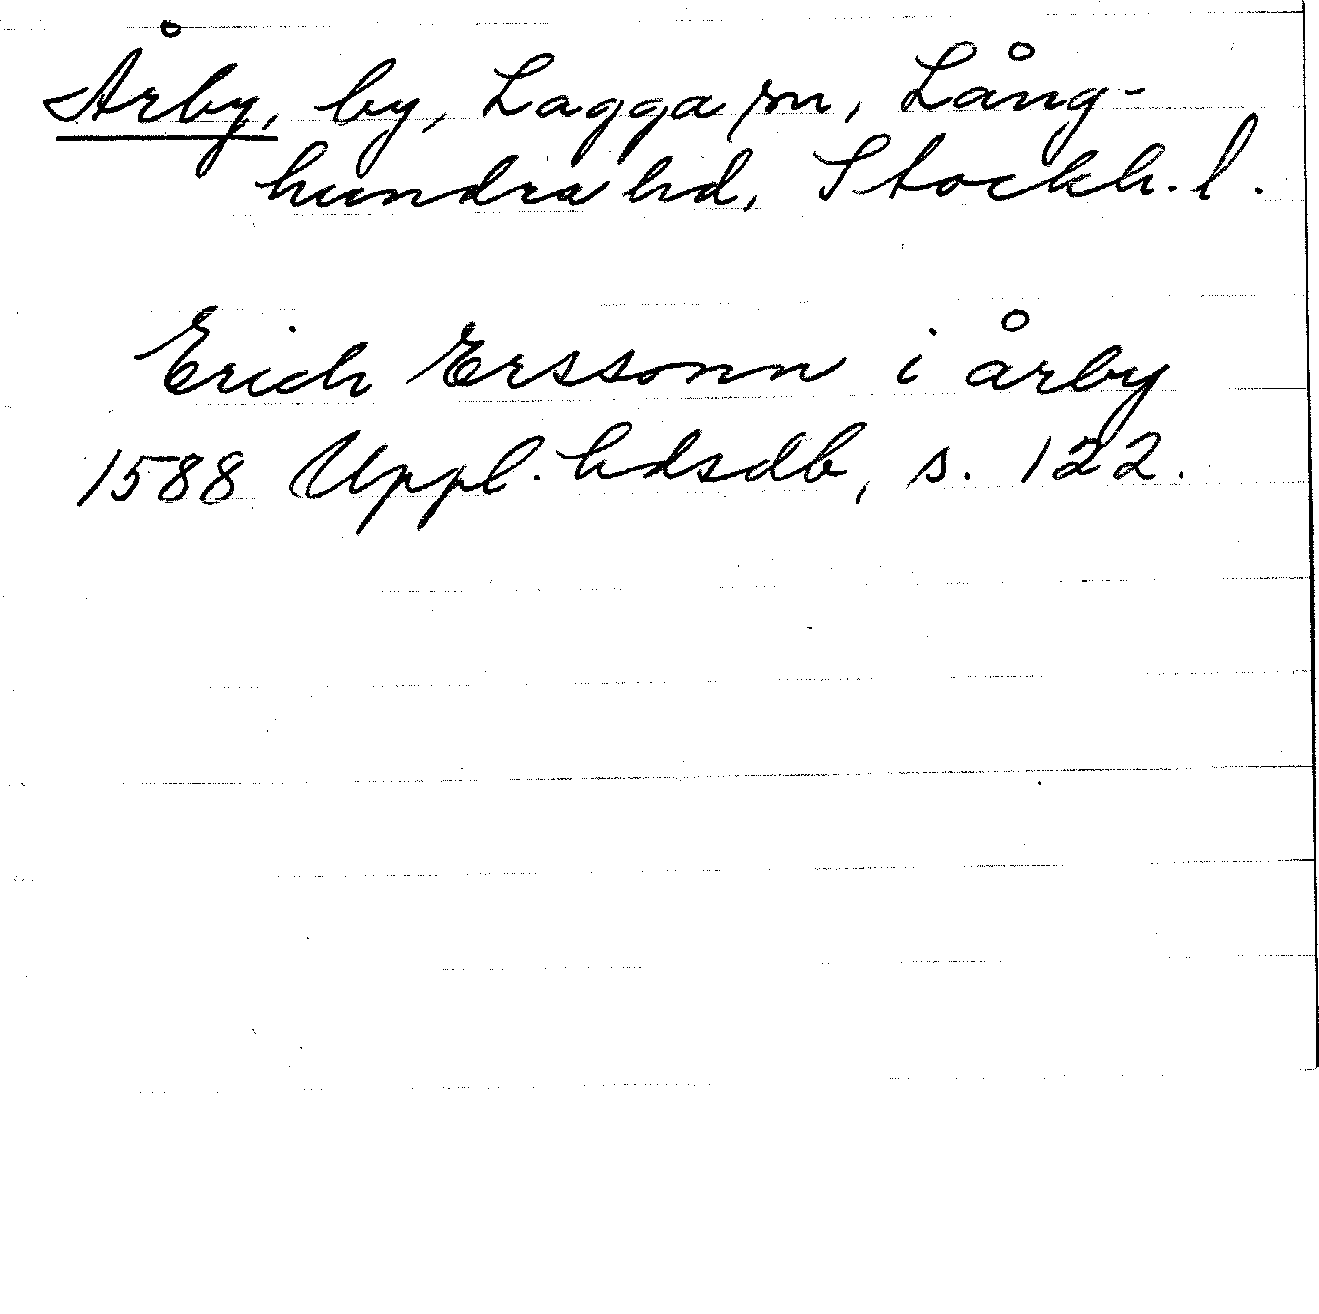 Årby, by, Lagga sn, Lång-
hundra hd, Stockh. l.
Erich Erssonn i årby
1588 Uppl. hdsdb, s. 122.